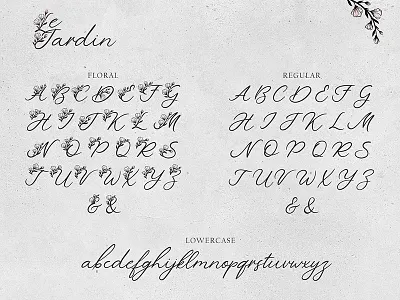 Le
Jardin
FLORAL
A B C D E F G
H I J K L M
N O P Q R S
T U V W X Y Z
& &
REGULAR
A B C D E F G
H I J K L M
N O P Q R S
T U V W X Y Z
& &
LOWERCASE
abcdefghijklmnopqrstuvwxyz